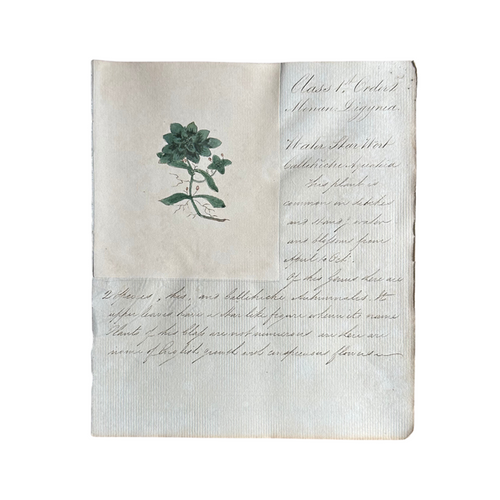 Class 1st Order 2
Monan Digynia
Water Star Wort
Callitriche Aquatica
This plant is
common in ditches
and stand.g water
and blossoms from
April to Oct.
Of this genus there are
2 species, this, and Callitriche Autumnalis. It
upper leaves have a star like figure whence its name
Plants of this Class are not numerous and there are
none of English growth with conspicuous flowers